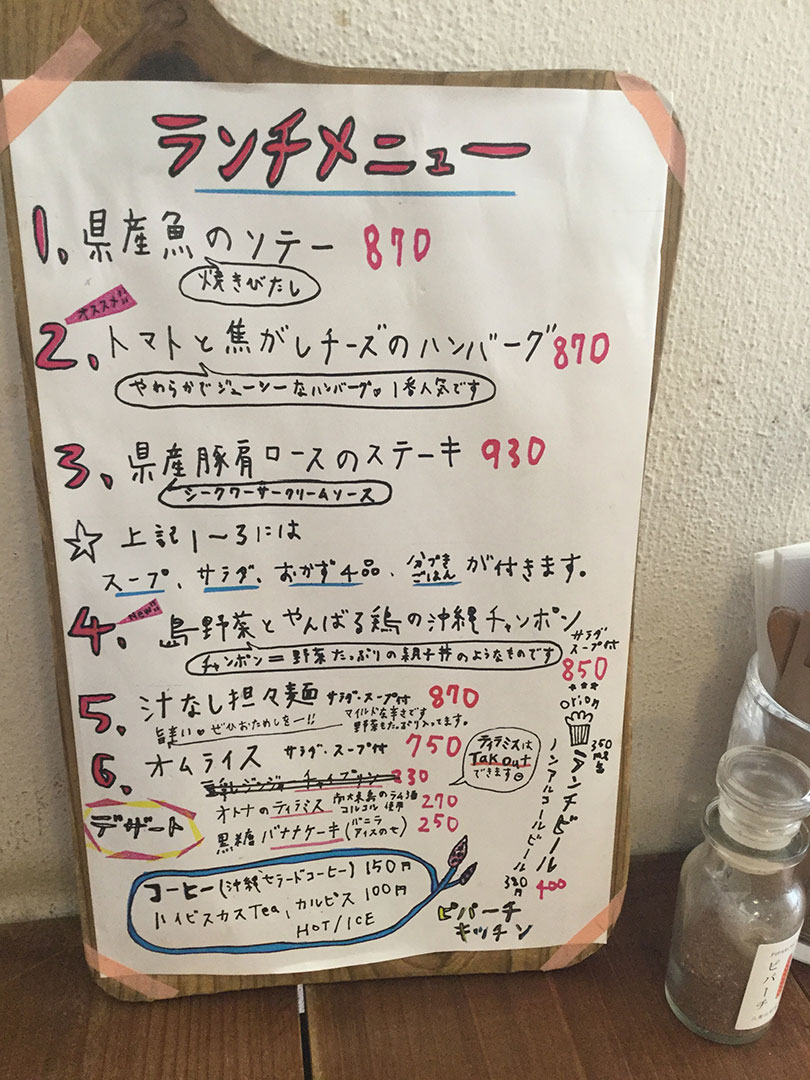 ランチメニュー
1. 県産魚のソテー 870
焼きびたし
オススメ!!
2. トマトと焦がしチーズのハンバーグ 870
やわらかでジューシーなハンバーグ♡ 1番人気です
3. 県産豚肩ロースのステーキ 930
シークワーサークリームソース
☆ 上記1〜3には
スープ、サラダ、おかず4品、分づきごはん が付きます。
New!!
4. 島野菜とやんばる鶏の沖縄チャンポン
チャンポン=野菜たっぷりの親子丼のようなものです
サラダ
スープ付
850
5. 汁なし担々麺 サラダ・スープ付 870
旨まい♡ ぜひおためしを〜!!
マイルドな辛さです
野菜もたっぷり入ってます。
6. オムライス サラダ・スープ付 750
ジンジャーチャイプリン 230
デザート
オトナのティラミス 南大東島のラム酒 コルコル 使用 270
黒糖 バナナケーキ(バニラアイスのせ) 250
ティラミスは
Tak out
できます
コーヒー(沖縄セラードコーヒー) 150円
ハイビスカスTea、カルピス 100円
HOT/ICE
orion
350ml缶
ランチビール
400
ノンアルコールビール
350円
ピパーチ
キッチン
ピパーチ